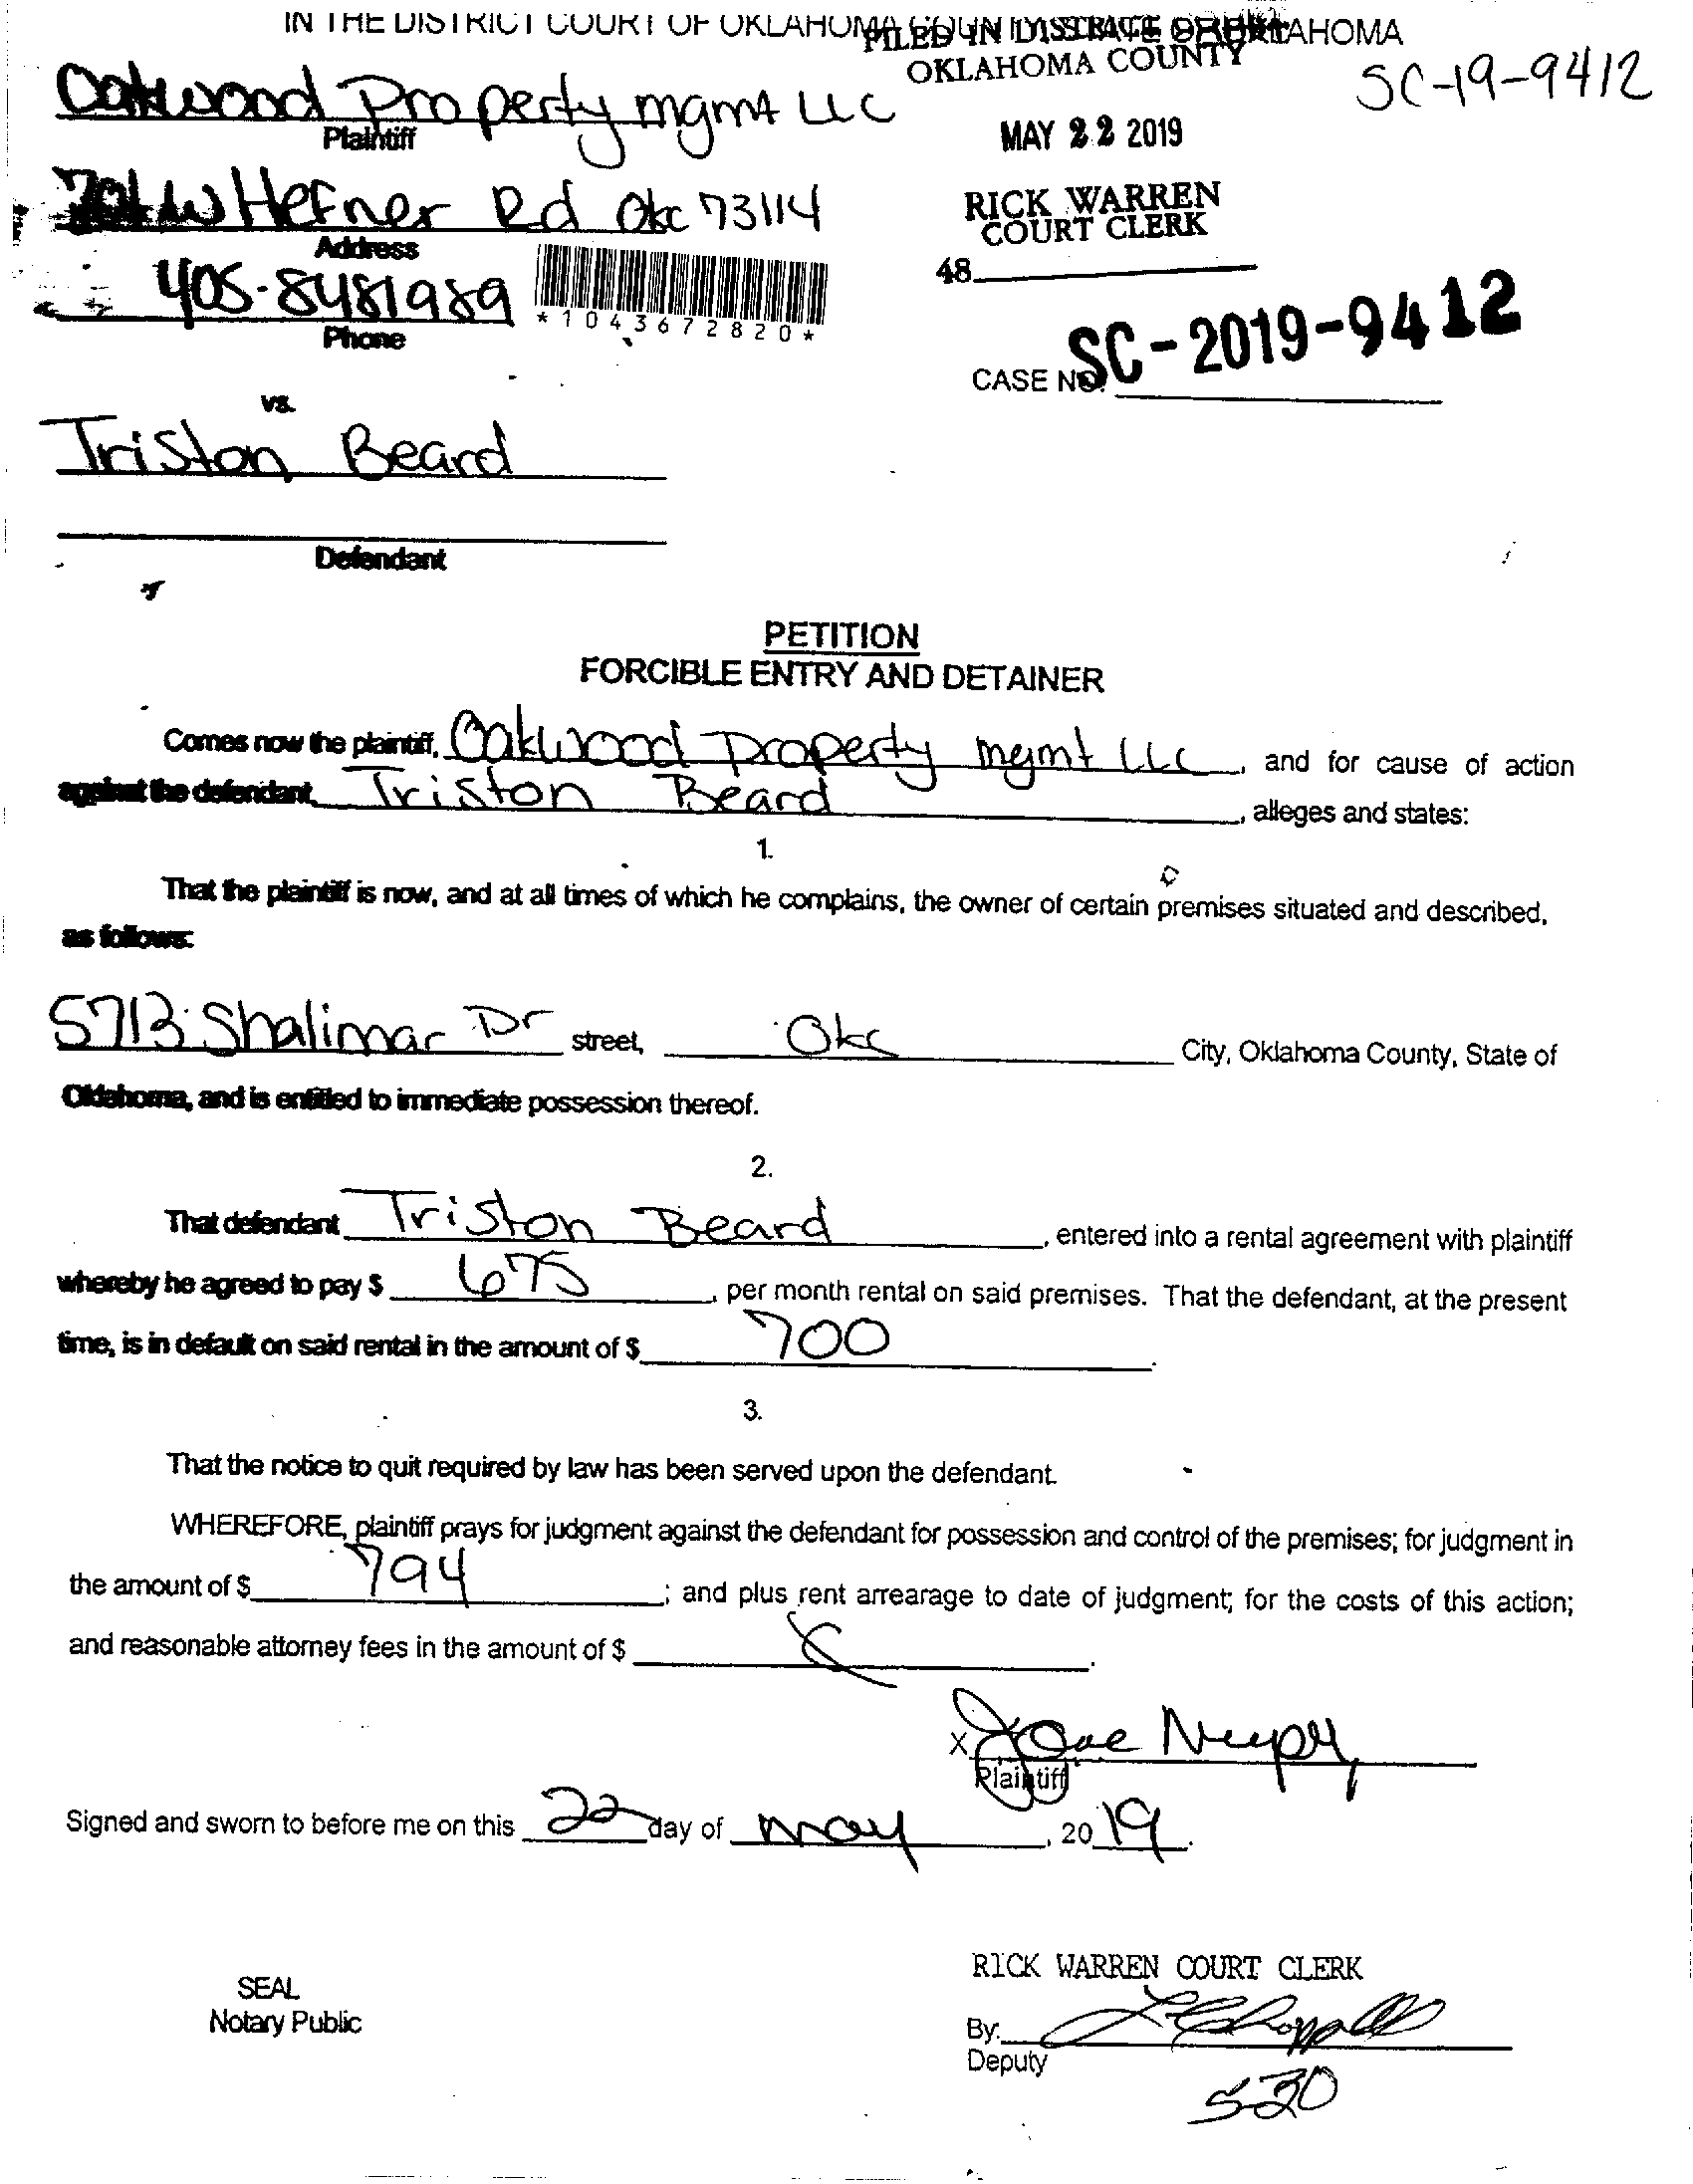 IN THE DISTRICT COURT OF OKLAHOMA COUNTY, STATE OF OKLAHOMA
FILED IN DISTRICT COURT
OKLAHOMA COUNTY
SC-19-9412
Oakwood Property mgmt LLC
Plaintiff
MAY 22 2019
701 W Hefner Rd Okc 73114
Address
RICK WARREN
COURT CLERK
405-8481989
Phone
*1043672820*
48
CASE NO. SC-2019-9412
vs.
Triston Beard
Defendant
PETITION
FORCIBLE ENTRY AND DETAINER
Comes now the plaintiff, Oakwood Property mgmt LLC, and for cause of action
against the defendant, Triston Beard, alleges and states:
1.
That the plaintiff is now, and at all times of which he complains, the owner of certain premises situated and described,
as follows:
5713 Shalimar Dr street, Okc City, Oklahoma County, State of
Oklahoma, and is entitled to immediate possession thereof.
2.
That defendant Triston Beard, entered into a rental agreement with plaintiff
whereby he agreed to pay $ 675, per month rental on said premises. That the defendant, at the present
time, is in default on said rental in the amount of $ 700.
3.
That the notice to quit required by law has been served upon the defendant.
WHEREFORE, plaintiff prays for judgment against the defendant for possession and control of the premises; for judgment in
the amount of $ 794; and plus rent arrearage to date of judgment; for the costs of this action;
and reasonable attorney fees in the amount of $
X
Plaintiff
Signed and sworn to before me on this 22 day of may, 2019.
RICK WARREN COURT CLERK
SEAL
Notary Public
By:
Deputy